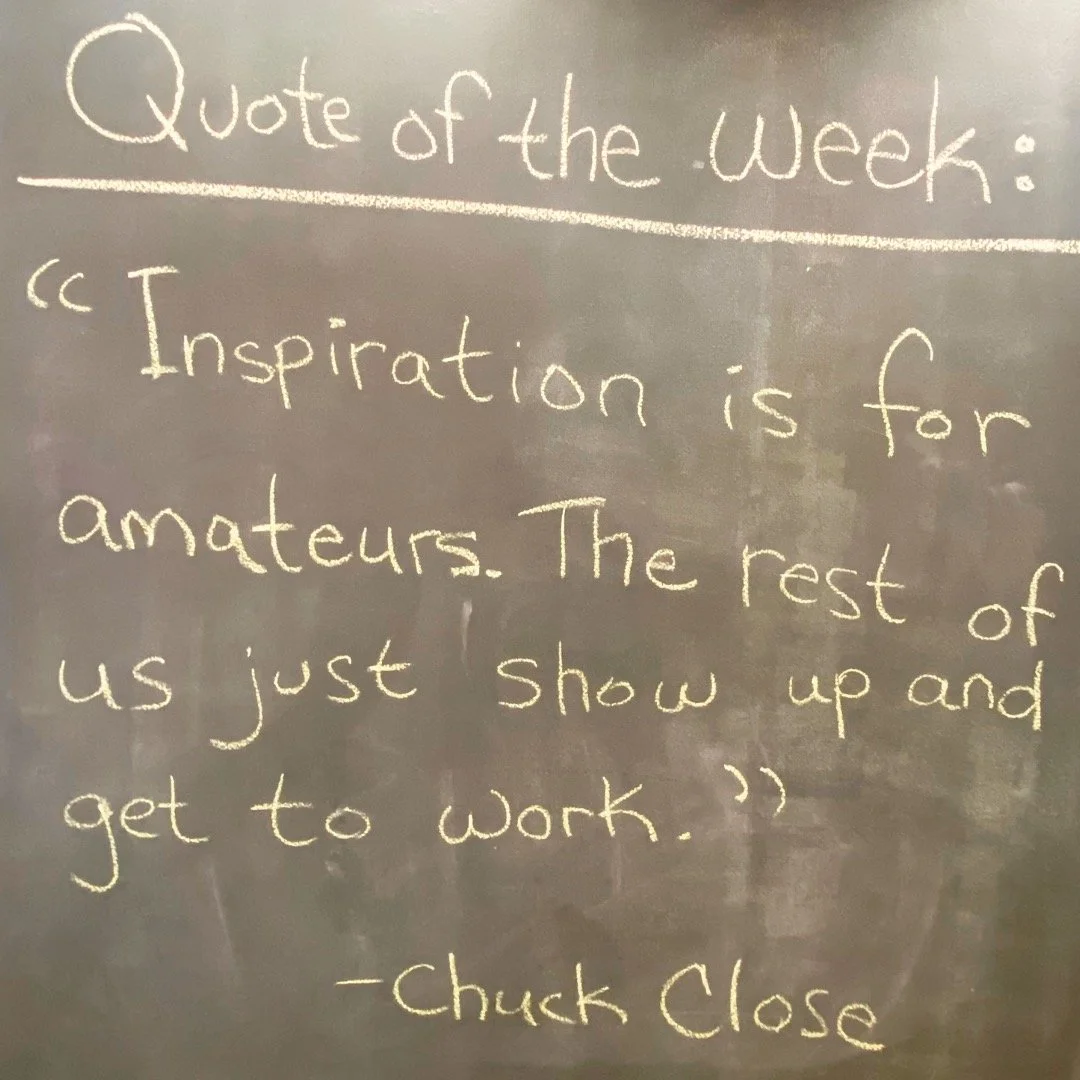 Quote of the week:
“Inspiration is for
amateurs. The rest of
us just show up and
get to work.”
-Chuck Close